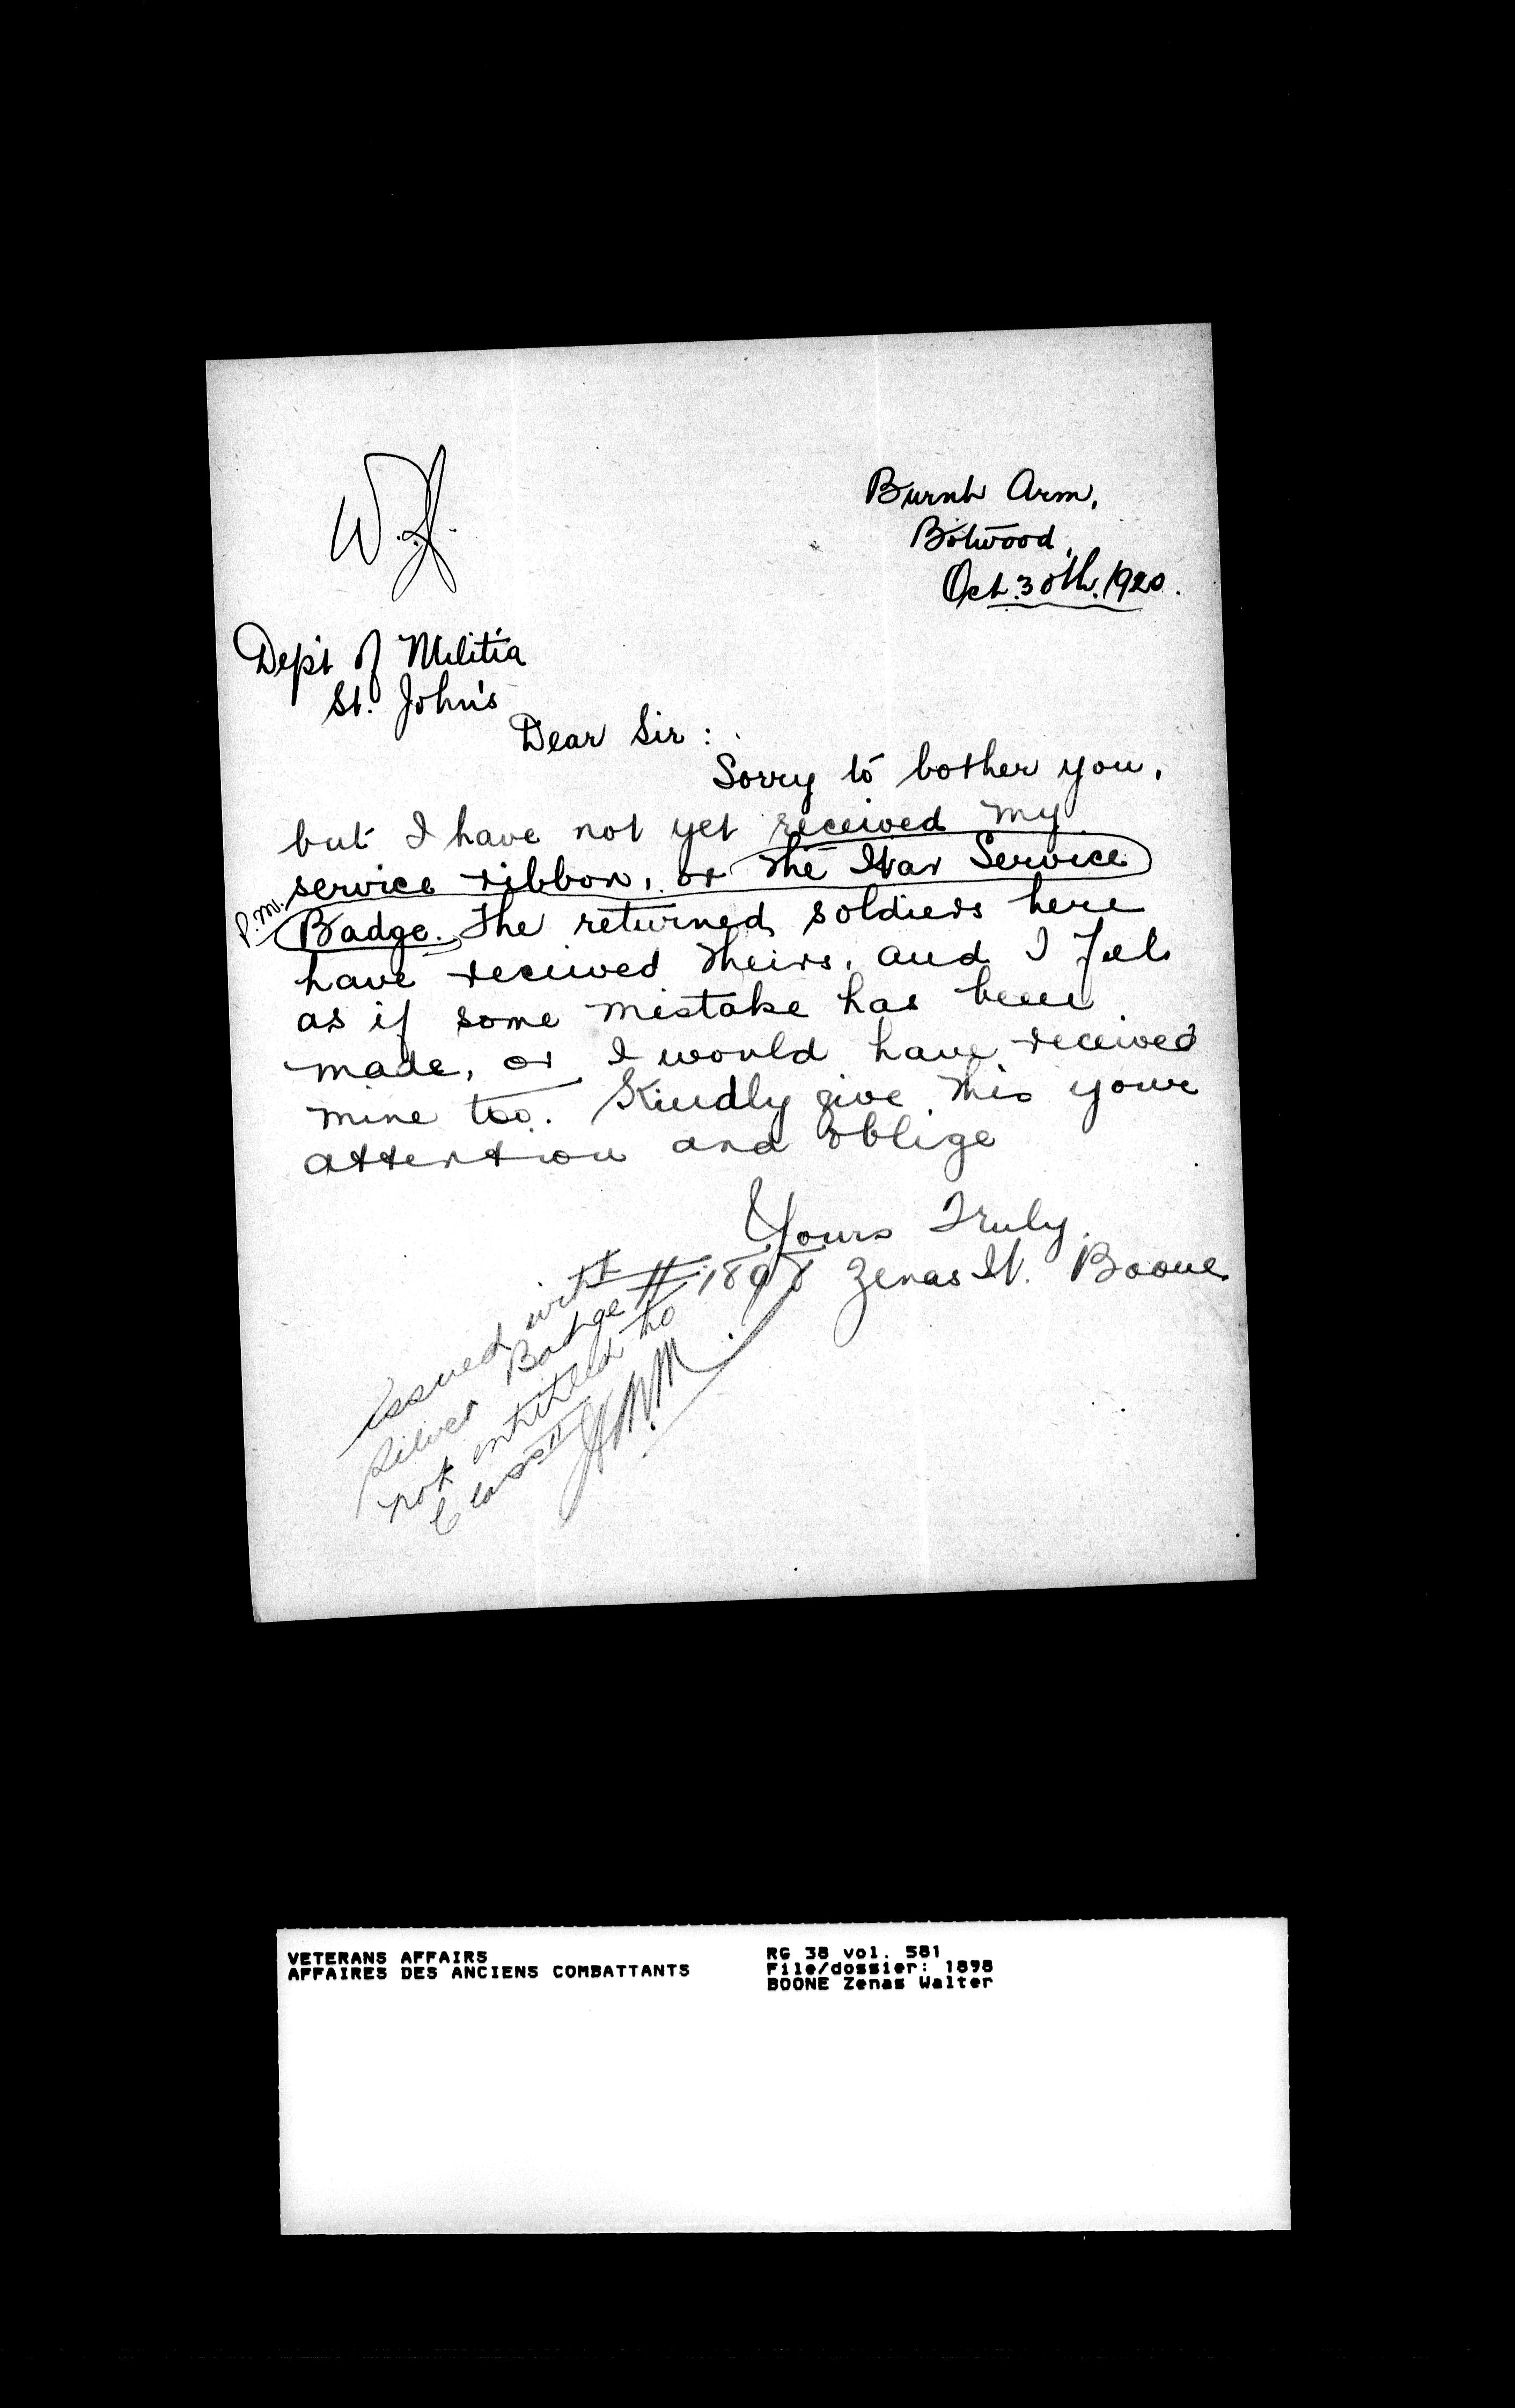 Burnt Arm,
Botwood,
Oct. 30th. 1920.
Dep't of Militia
St. John's
Dear Sir :
Sorry to bother you,
but I have not yet received my
service ribbon, or the War Service
P.M.
Badge. The returned soldiers here
have received theirs, and I feel
as if some mistake has been
made, or I would have received
mine too. Kindly give this your
attention and oblige
Yours Truly,
Zenas W. Boone
Issued with
Silver Badge # 1898
not entitled to
Class II
VETERANS AFFAIRS
AFFAIRES DES ANCIENS COMBATTANTS
RG 38 vol. 581
File/dossier: 1898
BOONE Zenas Walter